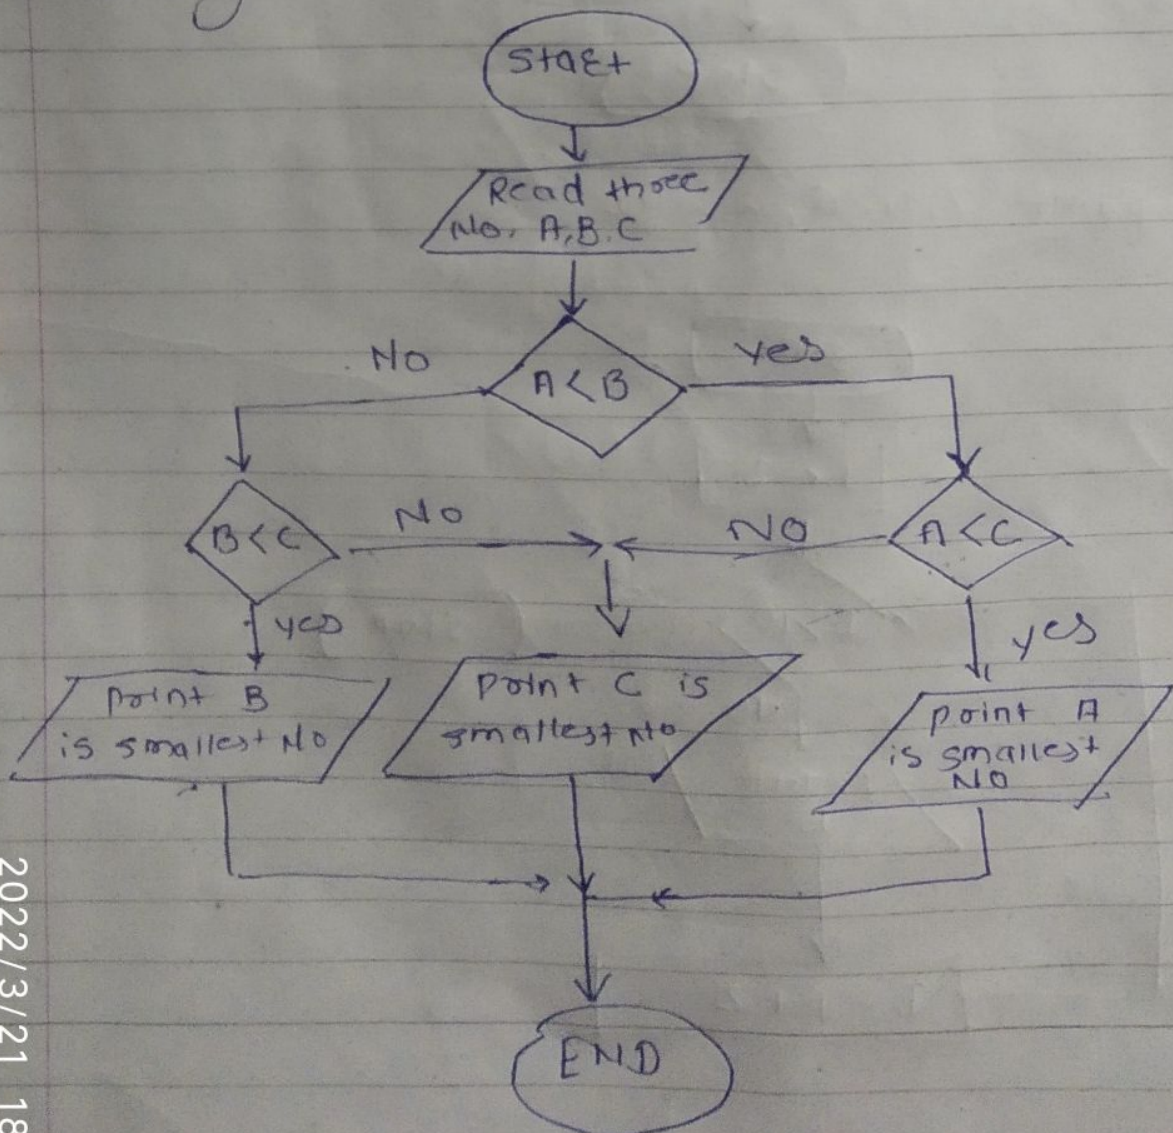 Start
Read three
No. A,B.C
No
A<B
yes
B<C
No
No
A<C
yes
yes
print B
is smallest No
print C is
smallest No
print A
is smallest
No
END
2022/3/21 18